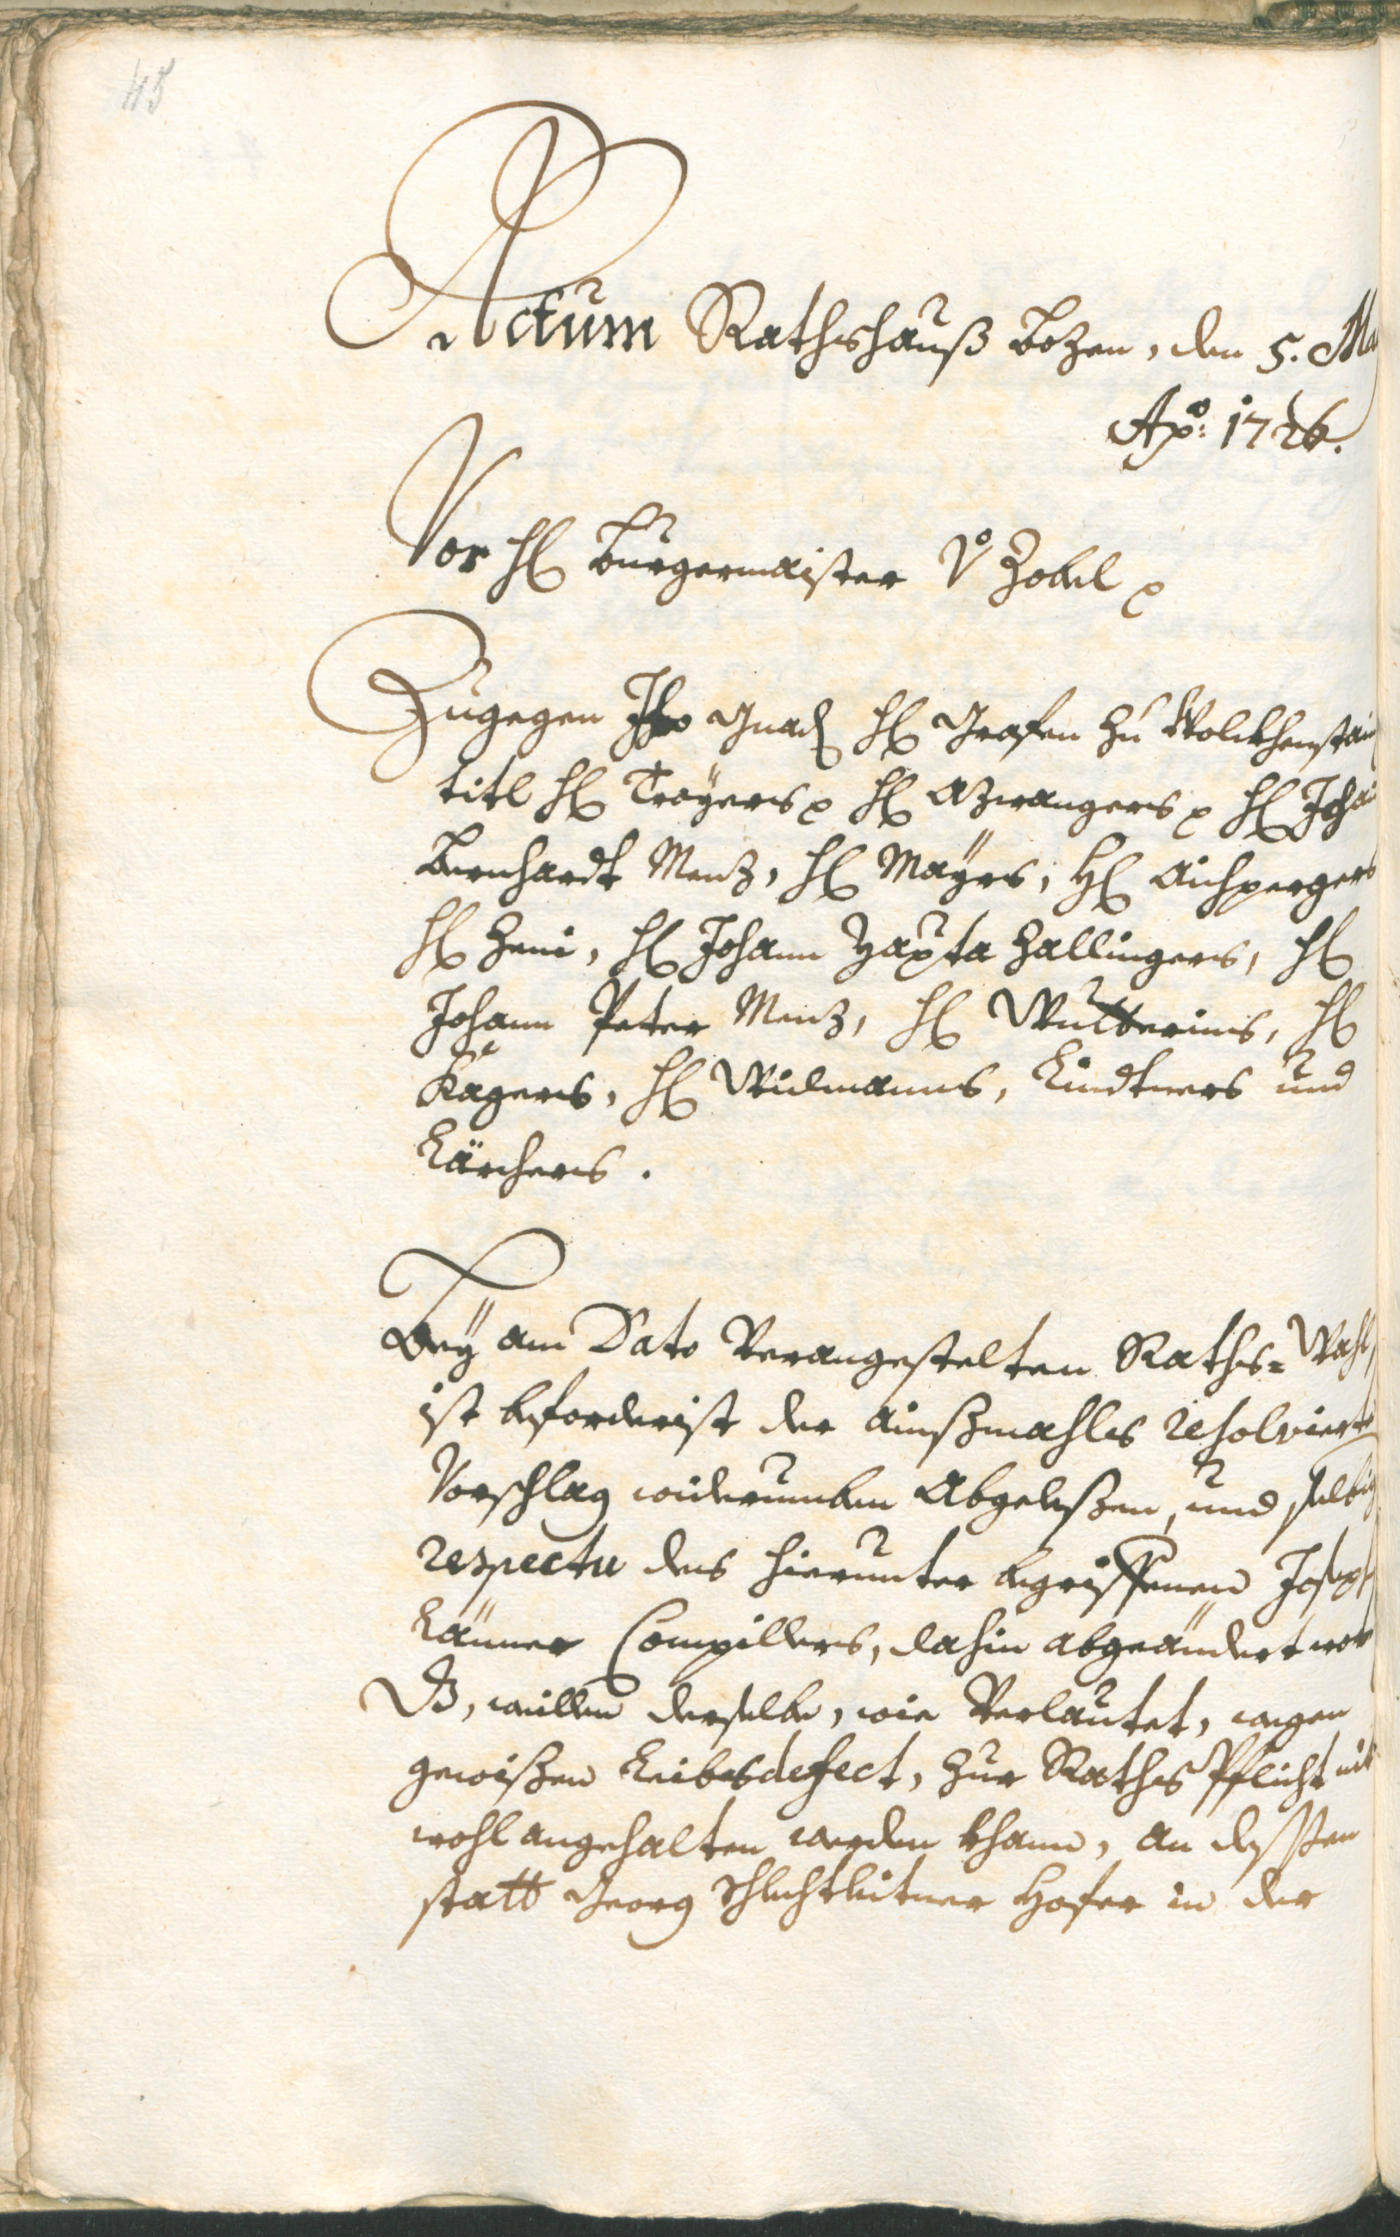 45
Actum Rathshauß Bozen, den 5. Ma
Aõ: 1726.
Vor H Burgermaister V. Zobel p
Zugegen Ihro Gnad H Grafen zu Wolckhenstain
titl H Troÿers p H Azwangers p H Johan
Bernhardt Menz, H Maÿrs, H Aichpergers
H Zeni, H Johann Bapta Zallingers, H
Johann Peter Menz, H Wutterinis, H
Kagers, H Widmanns, Lindtners und
Lärchers.
Beÿ am Dato Verangestelten Raths= Wahl,
ist beforderist der ainßmahls resolvierte
Vorschlag widerumben abgeleßen, und selbig
respectu des hierunter begriffenen Joseph
Länner Compillers, dahin abgeändert wor
, weillen derselbe, wie Verlautet, wegen
gewißen Leibsdefect, zur Raths Pflicht nit
wohl angehalten werden khann, an deßßen
statt Georg Schlechtleitner Hofer in der